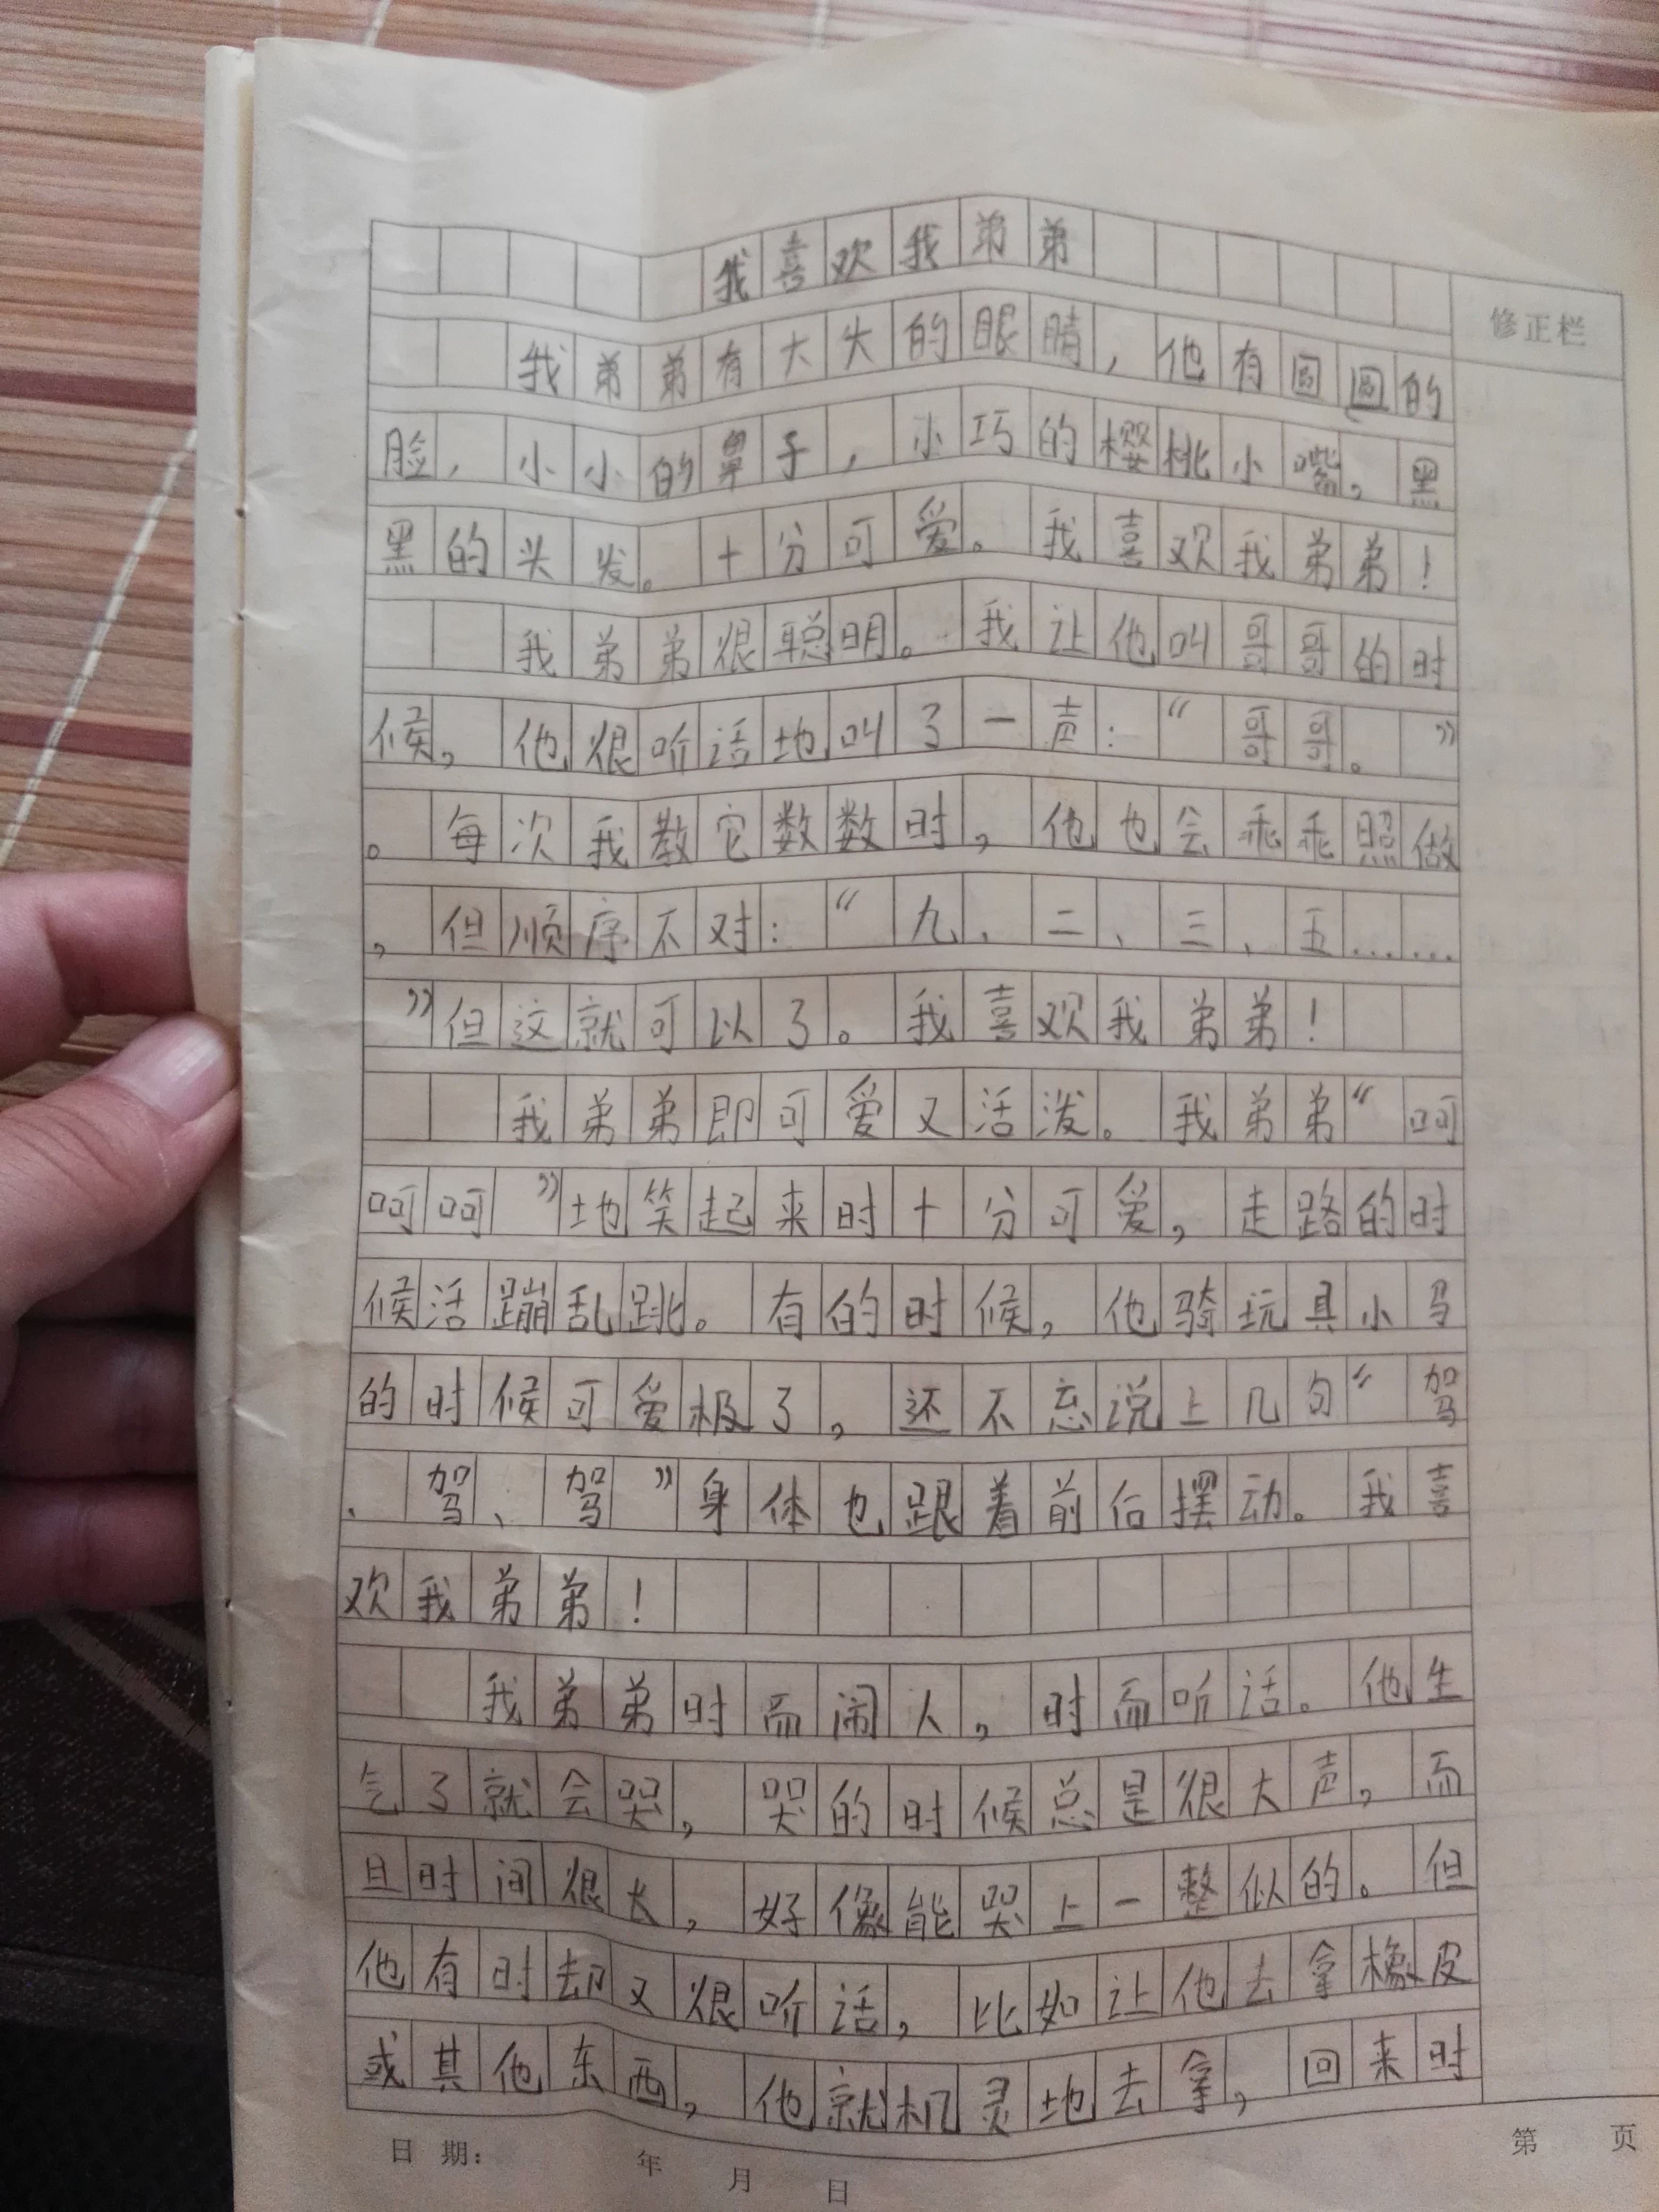 我喜欢我弟弟
修正栏
我弟弟有大大的眼睛，他有圆圆的
脸，小小的鼻子，小巧的樱桃小嘴，黑
黑的头发。十分可爱。我喜欢我弟弟！
我弟弟很聪明。我让他叫哥哥的时
候，他很听话地叫了一声：“哥哥。”
。每次我教它数数时，他也会乖乖照做
，但顺序不对：“九、二、三、五……
”但这就可以了。我喜欢我弟弟！
我弟弟即可爱又活泼。我弟弟“呵
呵呵”地笑起来时十分可爱，走路的时
候活蹦乱跳。有的时候，他骑玩具小马
的时候可爱极了，还不忘说上几句“驾
、驾、驾”身体也跟着前后摆动。我喜
欢我弟弟！
我弟弟时而闹人，时而听话。他生
气了就会哭，哭的时候总是很大声，而
且时间很长，好像能哭上一整似的。但
他有时却又很听话，比如让他去拿橡皮
或其他东西，他就机灵地去拿，回来时
日期： 年 月 日
第 页